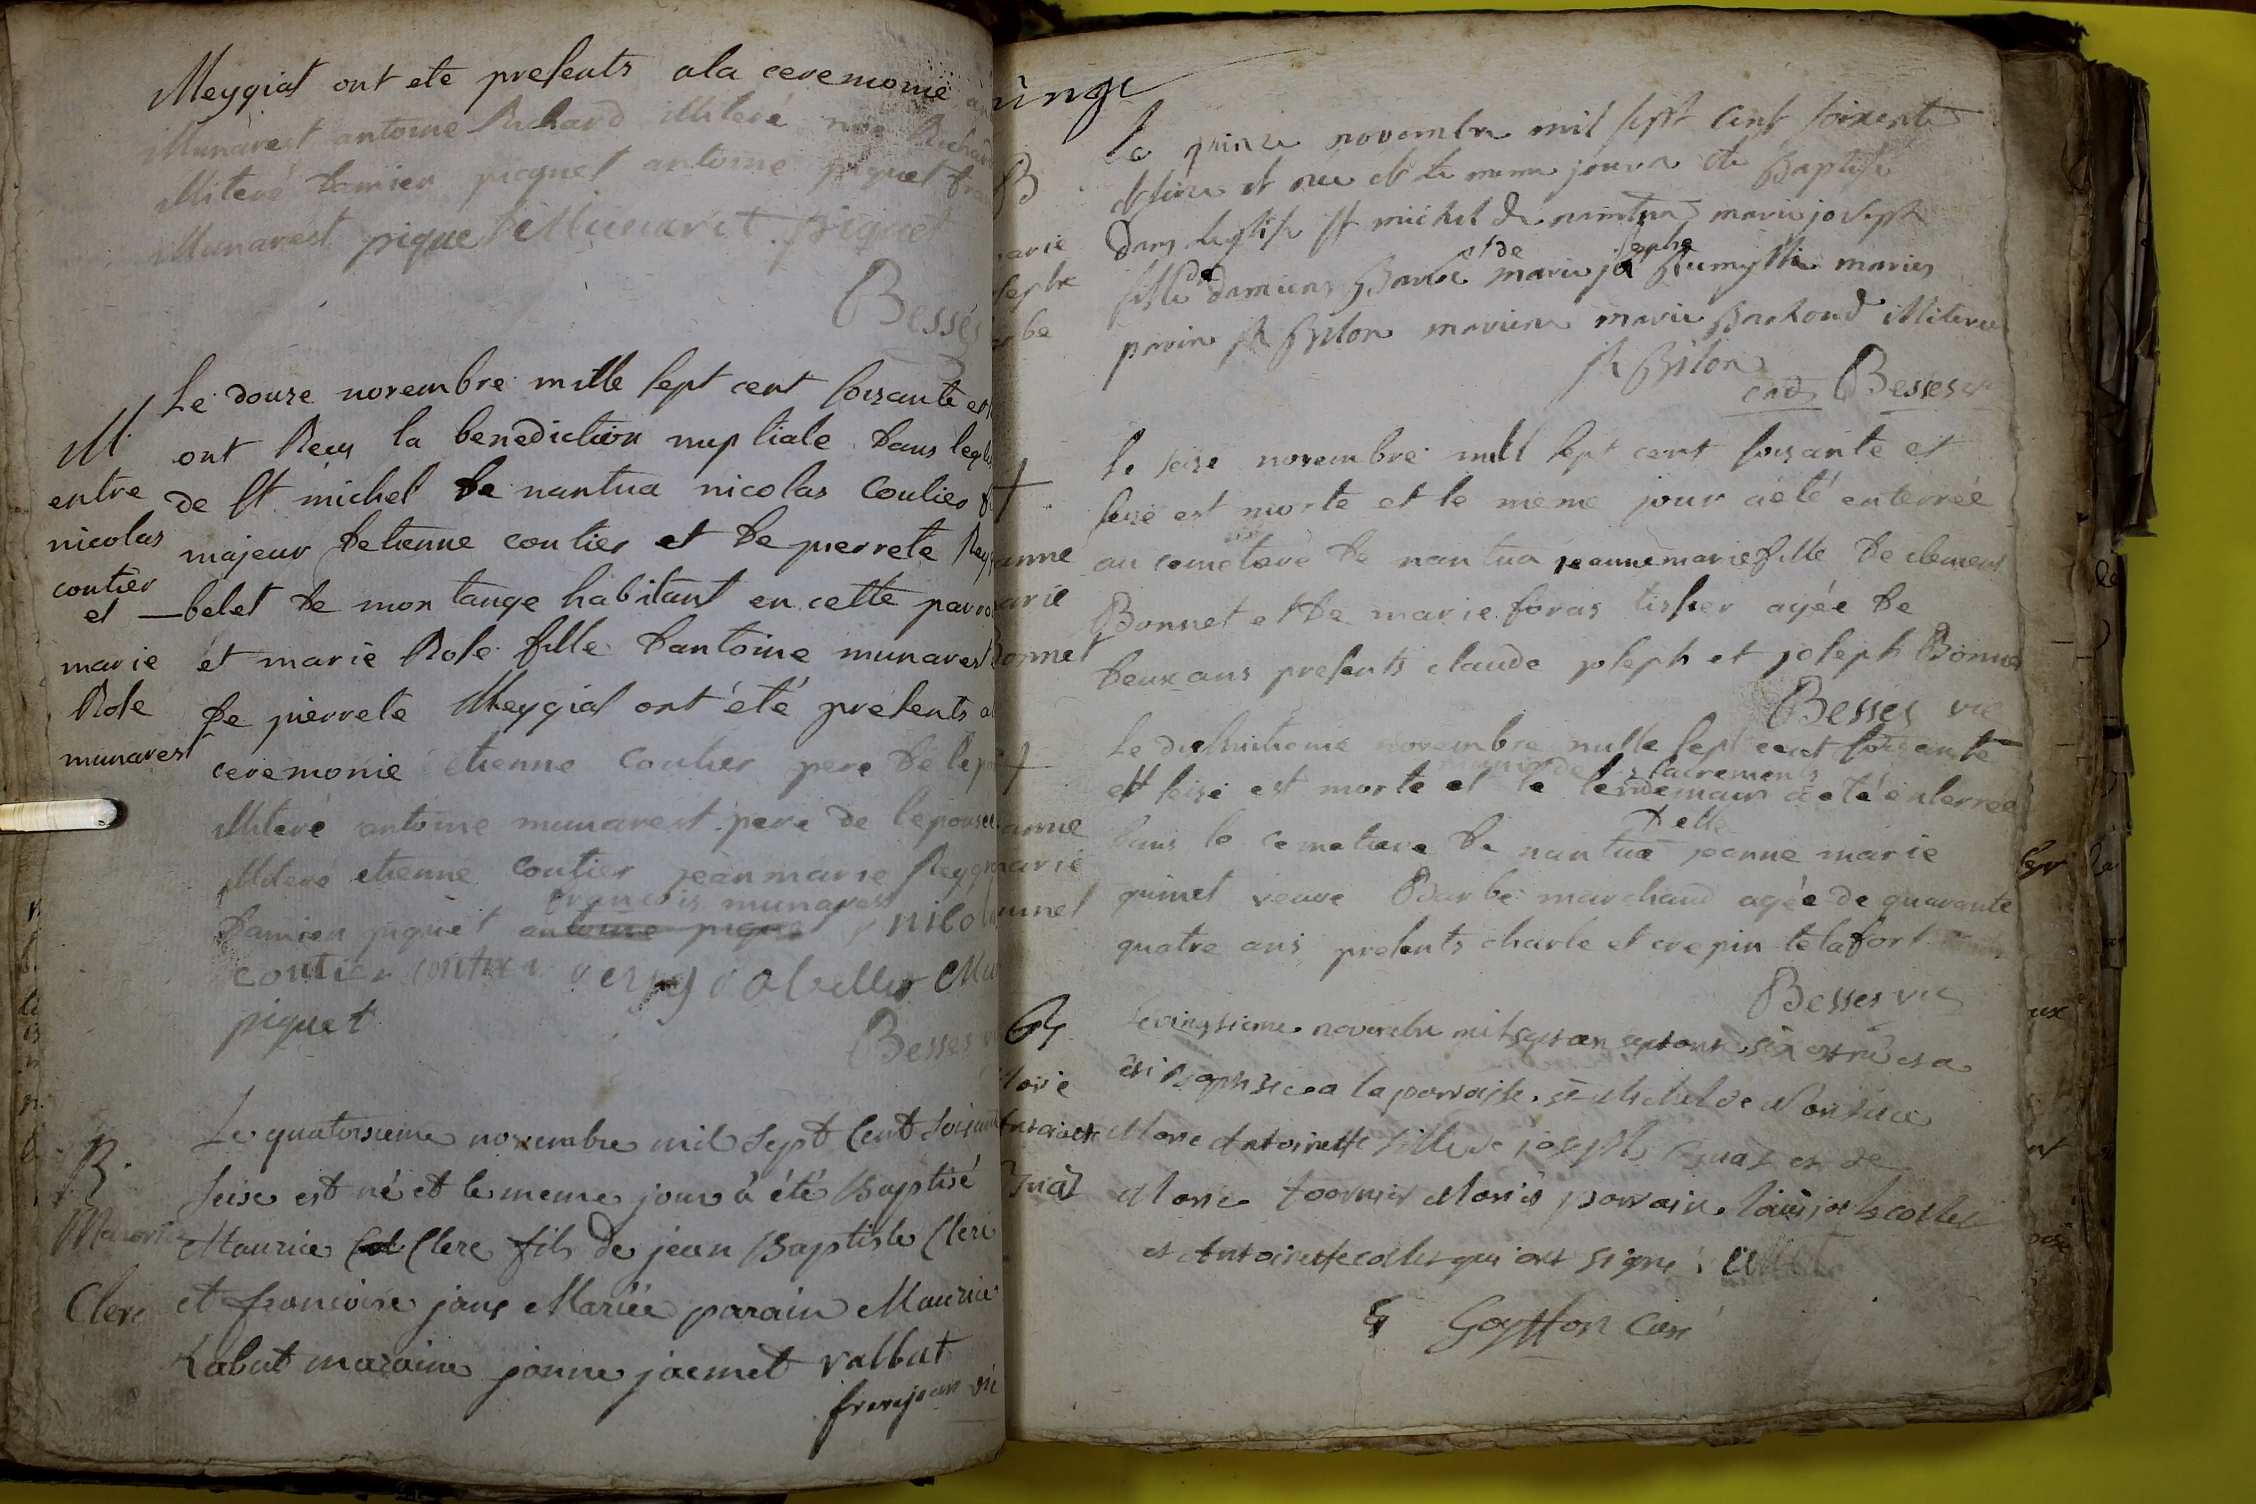 Meygiat ont ete presents a la ceremonie
Munarest antoine Richard illiteré
illiteré damien piquet antoine piquet
Munarest pique Munaret piquet
Besses
M
entre
nicolas
coutier
et
marie
Rose
munarest
Le douse novembre mille sept cent soixante et
ont Reçu la benediction nuptiale dans legli
de St michel de nantua nicolas Coutier
majeur detienne coutier et de pierrete Rey
belet de montange habitant en cette parro
et marie Rose fille dantoine munarest
de pierrete Meygiat ont été présents a
ceremonie etienne coutier pere de lep
illiteré antoine munarest pere de lepouse
illiteré etienne coutier jean marie Reyg
francois munarest
damien piquet antoine piquet nicol
coutier
piquet
Besses
B.
Maurice
Clerc
Le quatorsieme novembre mil sept Cent Soixante
Seise est né et le meme jour à été Baptisé
Maurice Clerc fils de jean Baptiste Clerc
et francoise jans Mariés parain Maurice
Labat maraine janne jacmet
unge
B
marie
josephe
barbe
Le quinze novembre mil sept cent soixante
et seize et née et le meme jour a été Baptisé
dans leglise St michel de nantua marie joseph
fille de damiens Barbe et de marie josephe humytte maries
parain Bilon maraine marie Barhoud illiteré
Bilon
Besses
+
anne
marie
Bonnet
Le seize novembre mill sept cent soixante et
seize est morte et le meme jour a été enterrée
au cemetaire de nantua jeanne marie fille de clement
Bonnet et de marie foras tisser agée de
deux ans presents claude joseph et joseph Bonnet
Besses vic
+
anne
marie
quinet
Le dixhuitieme novembre mille sept cent soixante
munie de sacrements
et seize est morte et le lendemain a été enterrée
delle
dans le cemetiere de nantua jeanne marie
quinet veuve Barbe marchand agée de quarante
quatre ans presents charle et crepin delafort
Besses vic
B
Marie
Antoinette
Levingtieme novembre mil sept cen septante six est né et a
été Baptisée a la paroisse St Michel de Nantua
Marie Antoinette fille de joseph et de
Marie fournier Mariés parrain Louis joseph collet
et Antoinette collet qui ont signé
Goyffon Curé